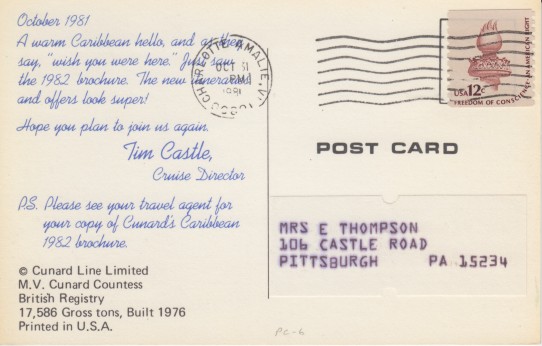 October 1981
A warm Caribbean hello, and as they
say, "wish you were here." Just saw
the 1982 brochure. The new itineraries
and offers look super!
Hope you plan to join us again.
Tim Castle,
Cruise Director
P.S. Please see your travel agent for
your copy of Cunard's Caribbean
1982 brochure.
© Cunard Line Limited
M.V. Cunard Countess
British Registry
17,586 Gross tons, Built 1976
Printed in U.S.A.
CHARLOTTE AMALIE, V
OCT 31
PM
1981
USA 12c
FREEDOM OF CONSCIENCE - AN AMERICAN RIGHT
POST CARD
MRS E THOMPSON
106 CASTLE ROAD
PITTSBURGH PA 15234
PC-6